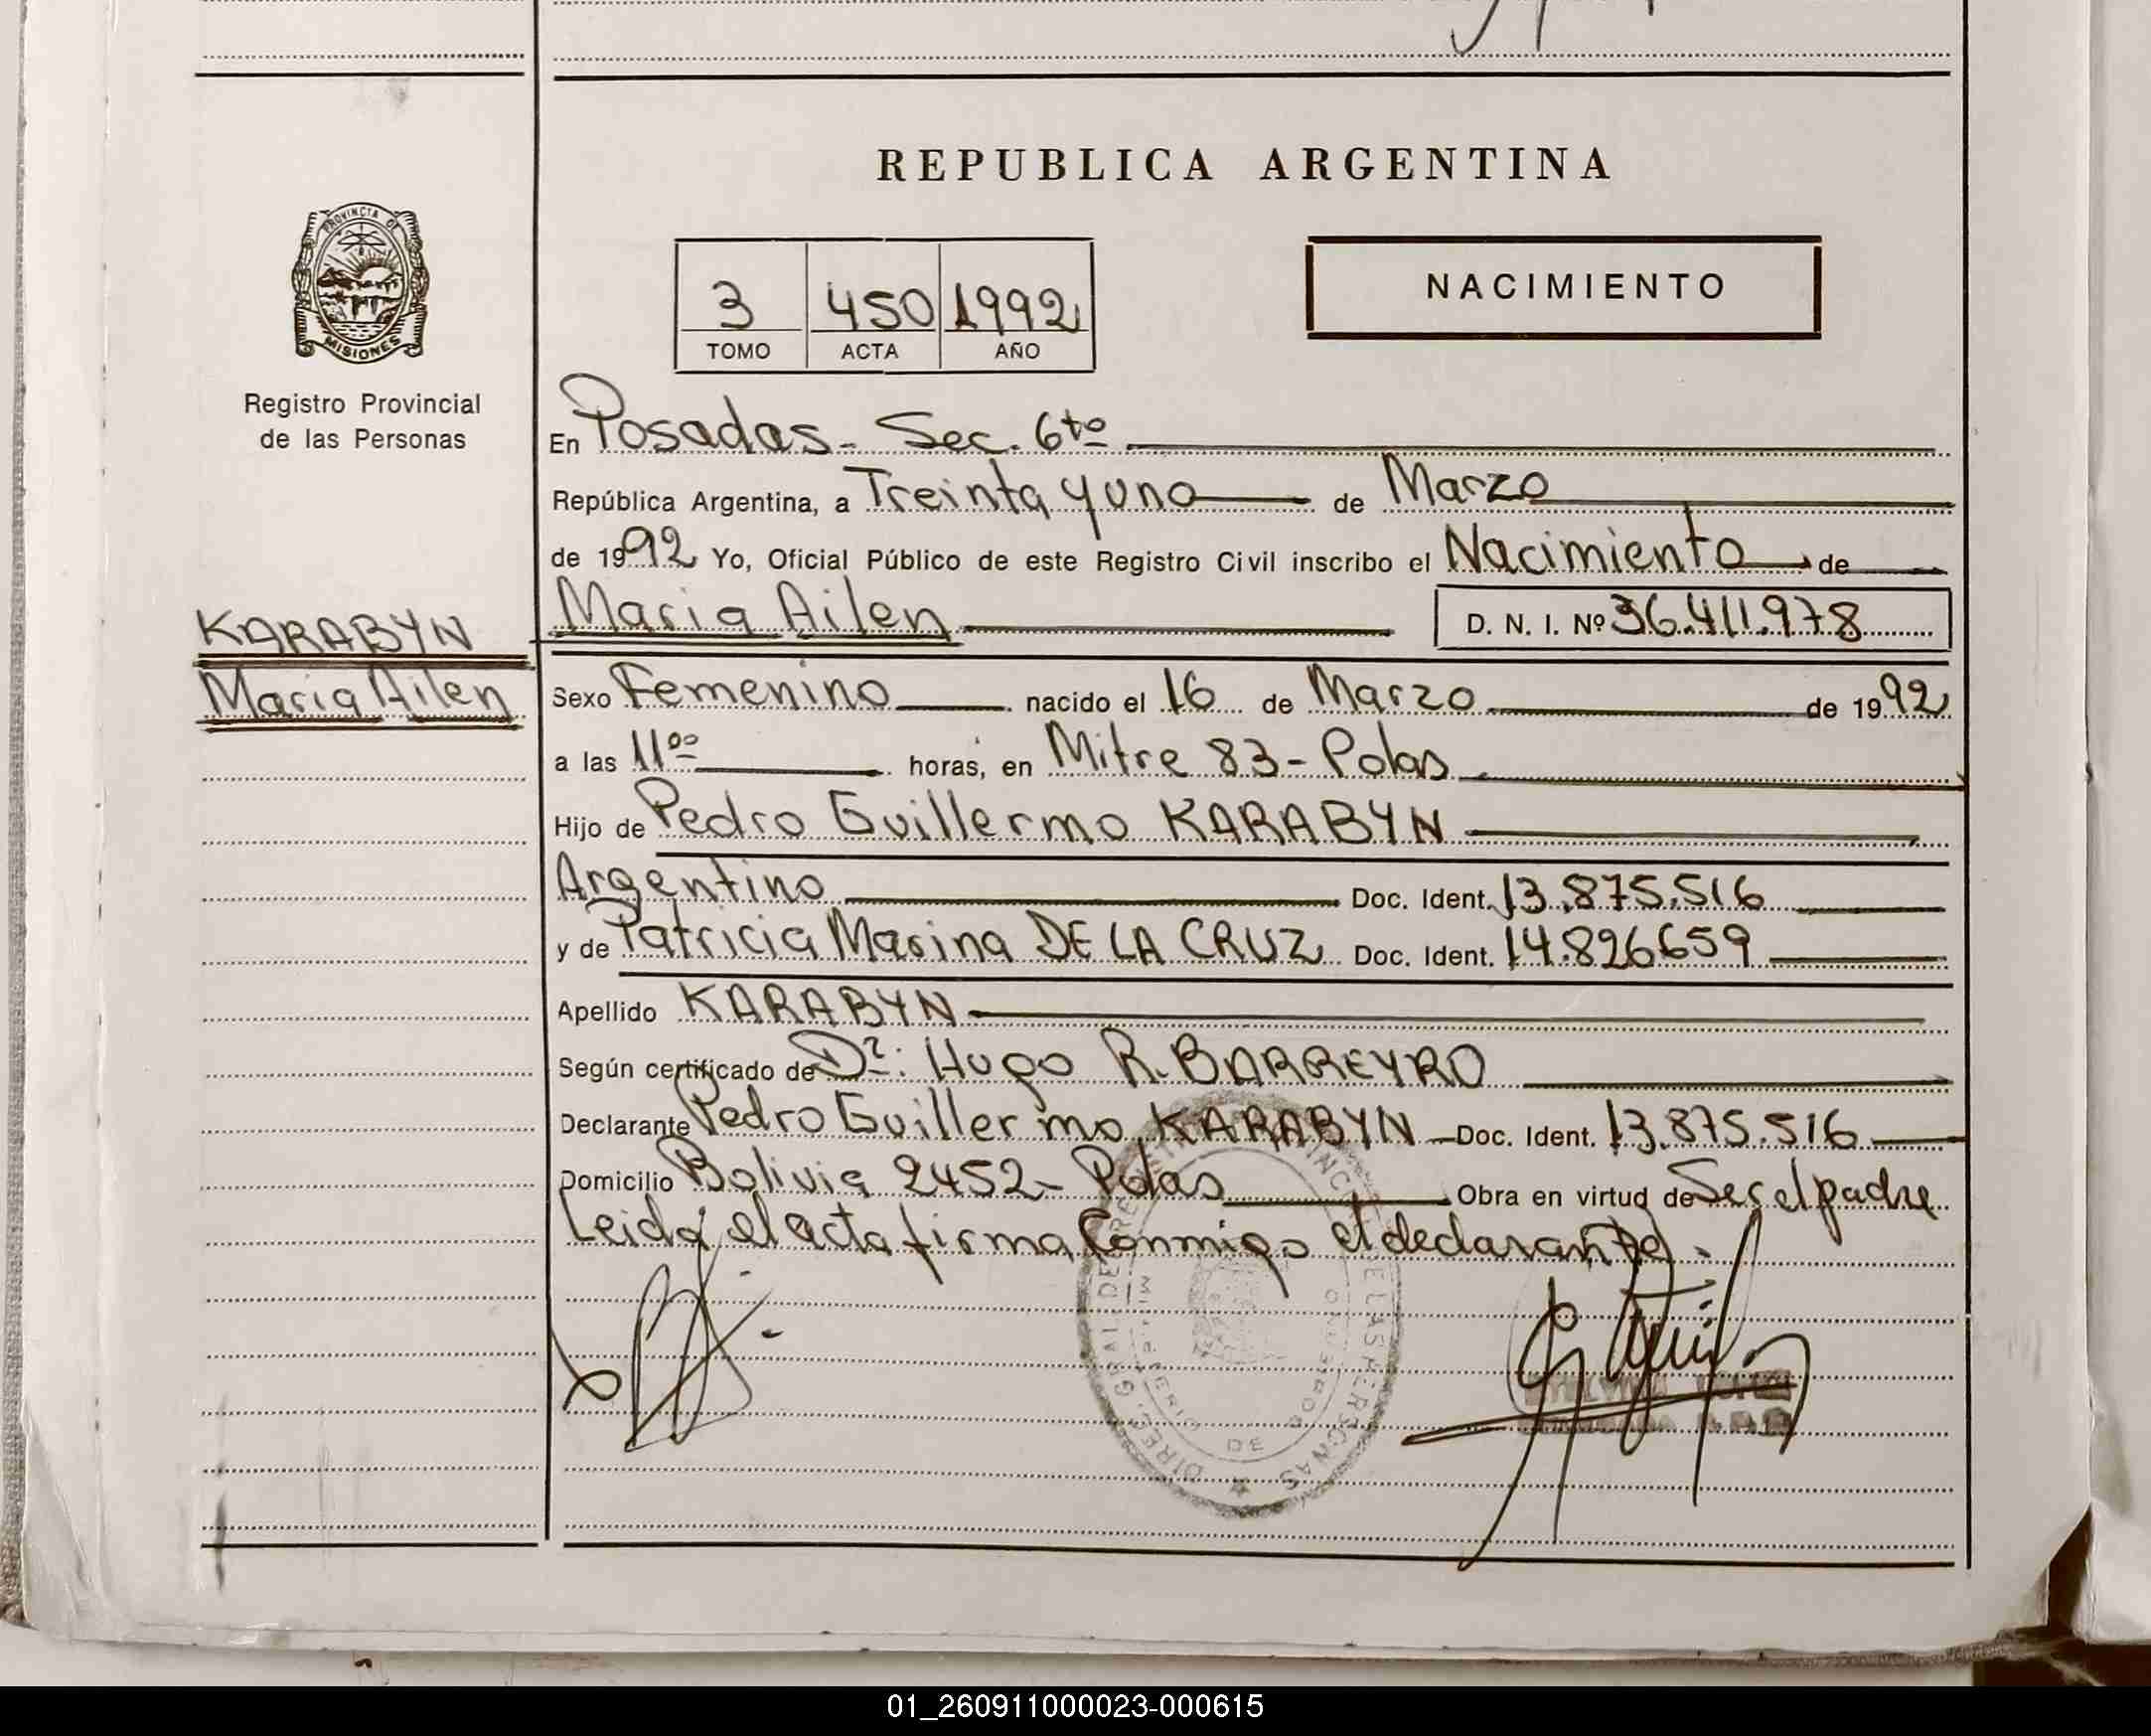 REPUBLICA ARGENTINA
PROVINCIA DE
MISIONES
Registro Provincial
de las Personas
3 450 1992
TOMO ACTA AÑO
NACIMIENTO
En Posadas - Sec. 6ta
República Argentina, a Treinta y uno de Marzo
de 1992 Yo, Oficial Público de este Registro Civil inscribo el Nacimiento de
Maria Ailen D. N. I. Nº 36.411.978
KARABYN
Maria Ailen
Sexo Femenino nacido el 16 de Marzo de 1992
a las 11ºº horas, en Mitre 83 - Pdas
Hijo de Pedro Guillermo KARABYN
Argentino Doc. Ident. 13.875.516
y de Patricia Marina DE LA CRUZ Doc. Ident. 14.826659
Apellido KARABYN
Según certificado de Dr: Hugo R. BARREYRO
Declarante Pedro Guillermo KARABYN Doc. Ident. 13.875.516
Domicilio Bolivia 2452 - Pdas Obra en virtud de Ser el padre
Leida el acta firma Conmigo el declarante.
DIREC. GRAL DE
DE LAS PERSONAS
DE
01_260911000023-000615